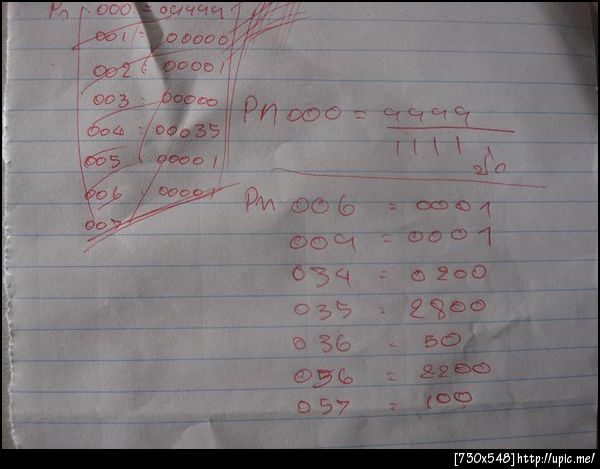 Pn 000 = 09999
001 = 00000
002 : 00001
003 = 00000
004 = 00035
005 : 00001
006 : 00001
007
PN 000 = 9999
1111
PN 006 = 0001
009 = 0001
034 = 0200
035 = 2800
036 = 50
056 = 2200
057 = 100
[730x548]http://upic.me/